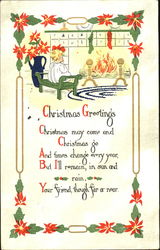 Christmas Greetings
Christmas may come and
Christmas go
And times change every year,
But I'll remain, in sun and
rain,
Your friend, though far or near.